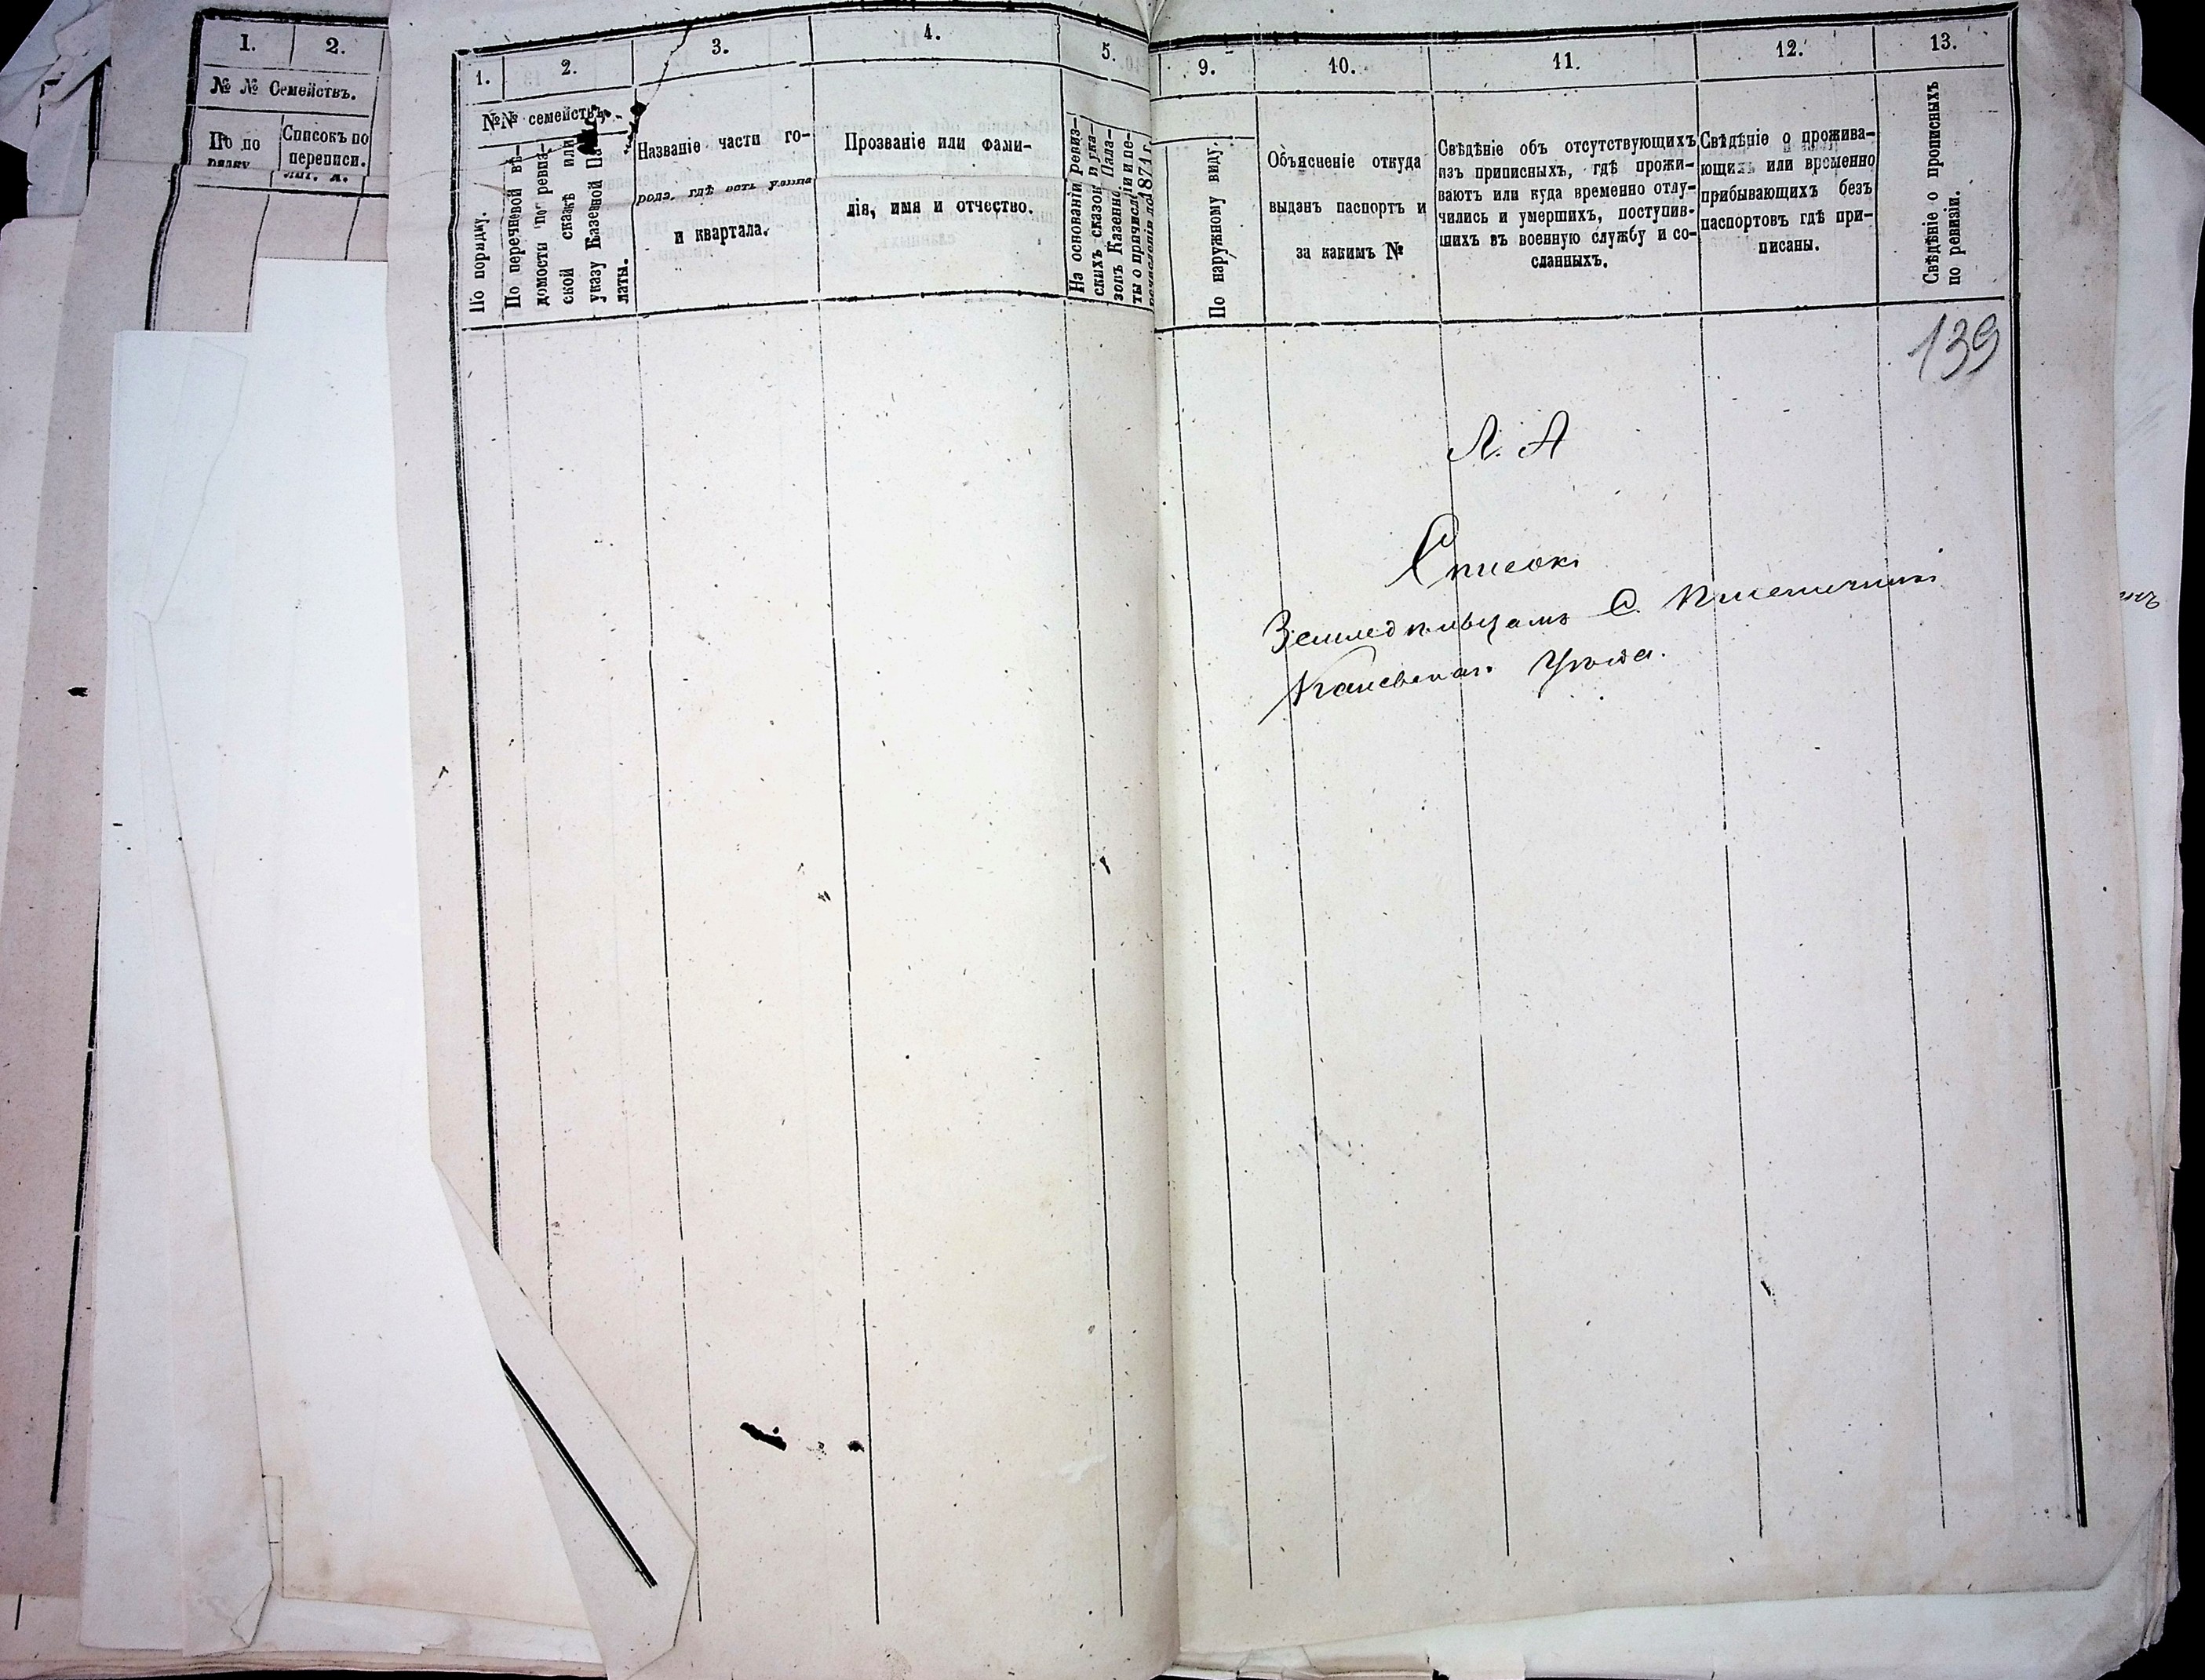 1.
2.
№ № Семействъ.
По по
Списокъ по
переписи.
Лит. А.
1.
2.
3.
4.
5.
№№ семействъ.
По порядку.
По перечневой вѣ-
домости по реви-
ской сказкѣ или
указу Казенной Па
латы.
Названіе части го-
рода, гдѣ есть улица
и квартала.
Прозваніе или фами-
лія, имя и отчество.
На основаніи ревиз-
скихъ сказокъ и ука-
зовъ Казенно. Пала-
ты о причисленіи и пе-
1871 г.
9.
10.
11.
12.
13.
По наружному виду.
Объясненіе откуда
выданъ паспортъ и
за какимъ №
Свѣдѣніе объ отсутствующихъ
изъ приписныхъ, гдѣ прожи-
ваютъ или куда временно отлу-
чились и умершихъ, поступив-
шихъ въ военную службу и со-
сланныхъ.
Свѣдѣніе о прожива-
ющихъ или временно
прибывающихъ безъ
паспортовъ гдѣ при-
писаны.
Свѣдѣніе о прописныхъ
по ревизіи.
139
Л. А
Списокъ
Земледѣльцамъ С. Пшеничники
Каневскаго Уѣзда.